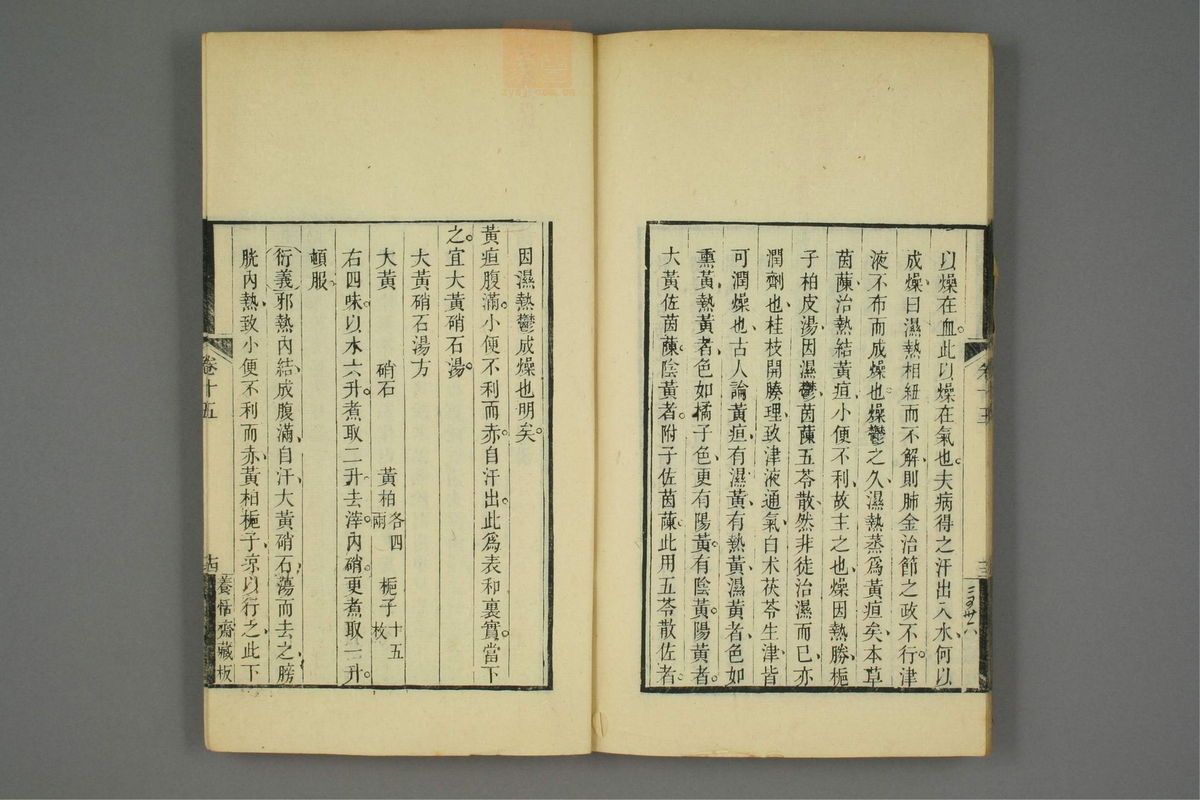 以燥在血此以燥在氣也夫病得之汗出入水何以
成燥曰濕熱相紐而不解則肺金治節之政不行津
液不布而成燥也燥鬱之久濕熱蒸爲黃疸矣本草
茵蔯治熱結黃疸小便不利故主之也燥因熱勝梔
子柏皮湯因濕鬱茵蔯五苓散然非徒治濕而已亦
潤劑也桂枝開腠理致津液通氣白朮茯苓生津皆
可潤燥也古人論黃疸有濕黃有熱黃濕黃者色如
熏黃熱黃者色如橘子色更有陽黃有陰黃陽黃者
大黃佐茵蔯陰黃者附子佐茵蔯此用五苓散佐者
卷十五
十三
因濕熱鬱成燥也明矣
黃疸腹滿小便不利而赤自汗出此爲表和裏實當下
之宜大黃硝石湯
大黃硝石湯方
大黃 硝石 黃柏各四兩 梔子十五枚
右四味以水六升煮取二升去滓內硝更煮取一升
頓服
衍義邪熱內結成腹滿自汗大黃硝石蕩而去之膀
胱內熱致小便不利而赤黃柏梔子凉以行之此下
卷十五
十四
養恬齋藏板